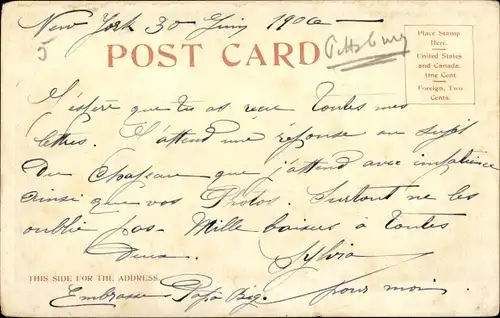 New York 30 Juin 1906
5
POST CARD
Pittsburg
Place Stamp
Here.
United States
and Canada,
One Cent.
Foreign, Two
Cents.
J'espère que tu as reçu toutes mes
lettres. J'attend une réponse au sujet
Du Chapeau que j'attend avec impatience
ainsi que vos Photos. Surtout ne les
oublie pas. Mille baisers à Toutes
Deux. Sylvia
THIS SIDE FOR THE ADDRESS.
Embrasse Papa pour moi.